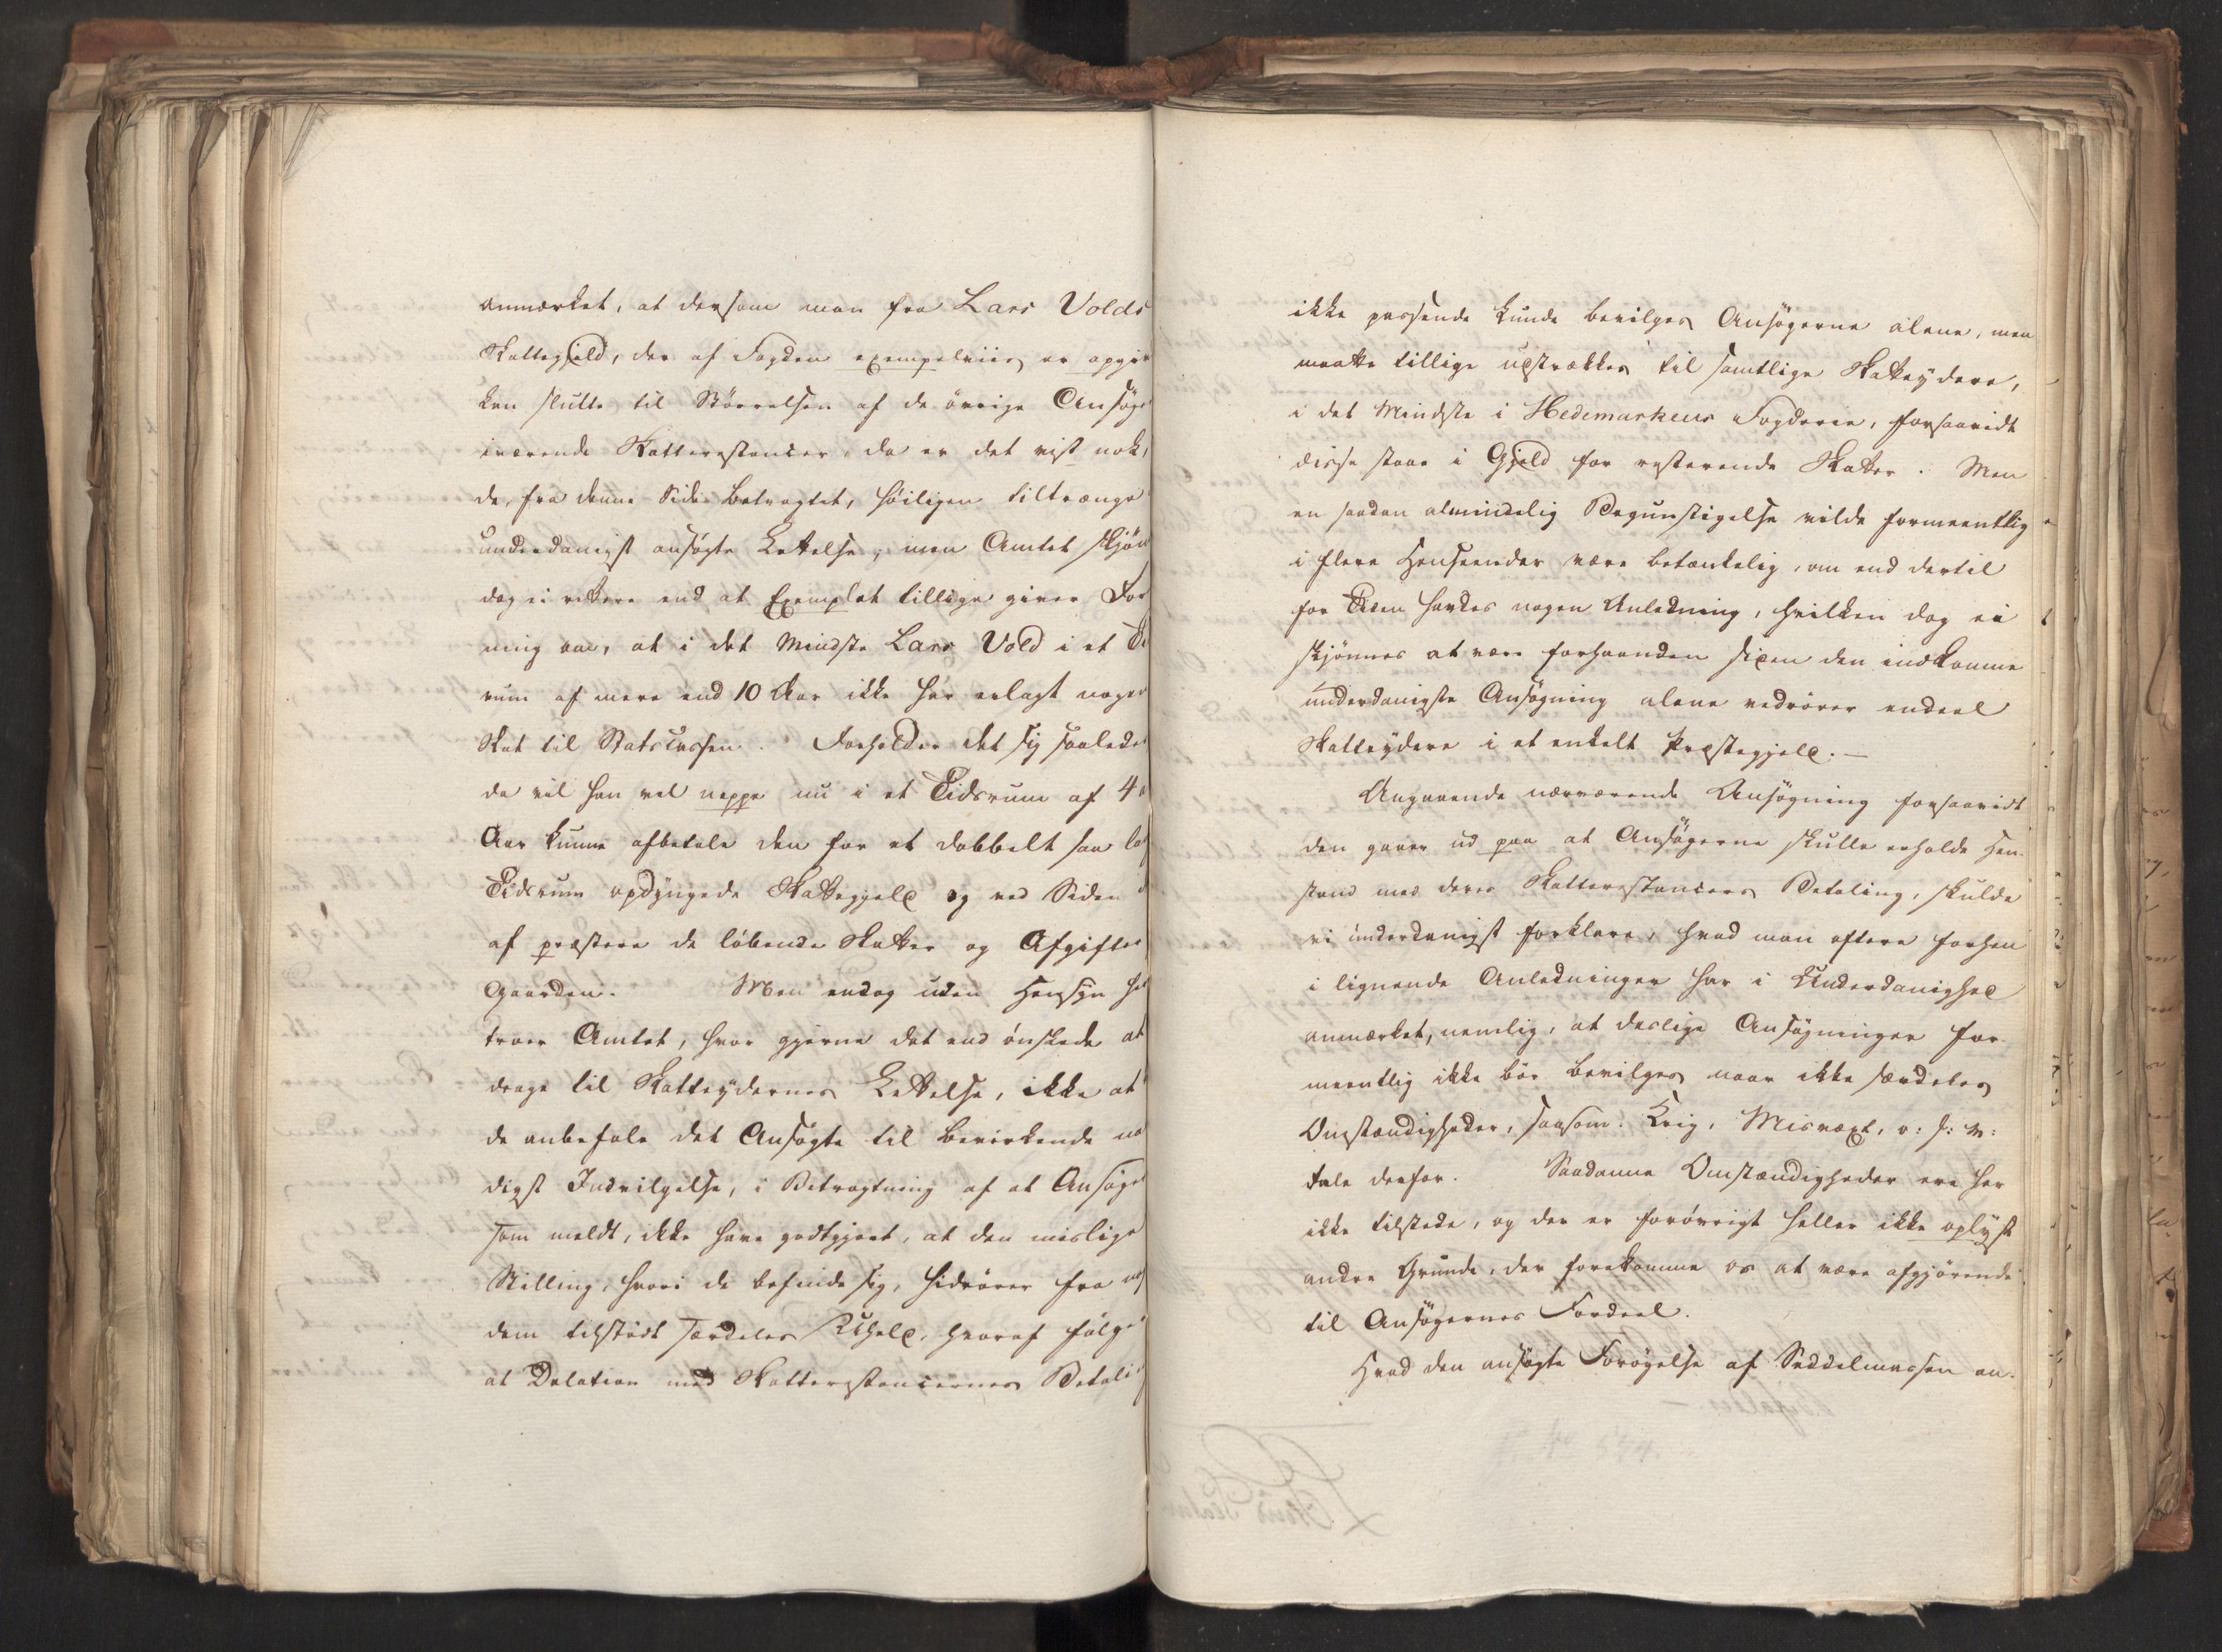 anmærket, at dersom man fra Lars Volds
Skattegjeld, der af Fogden exempelviis er opgiv
kan slutte til Størrelsen af de øvrige Ansøge
iværende Skatterestancer, da er det vist nok,
de, fra denne Side betragtet, høiligen tiltrænge
underdanigst ansøgte Lettelse; men Amtet skjøn
dog ei rettere end at Exemplet tillige giver For
ning om, at i det Mindste Lars Vold i et Ti
rum af mere end 10 Aar ikke har erlagt nogen
Skat til Statscassen. Forholder det sig saaledes
da vil han vel neppe nu i et Tidsrum af 4
Aar kunne afbetale den for et dobbelt saa la
Tidsrum opdyngede Skattegjeld og ved Siden
af præstere de løbende Skatter og Afgifter
Gaarden. Men endog uden Hensyn he
troer Amtet, hvor gjerne det end ønskede at
drage til Skatteydernes Lettelse, ikke at
de anbefale det Ansøgte til bevirkende na
digst Indvilgelse, i Betragtning af at Ansøge
som meldt, ikke have godtgjort, at den mislige
Stilling, hvori de befinde sig, hidrører fra no
dem tilstødt særdeles Uheld, hvoraf følge
at Dilation med Skatterestancernes Betali
ikke passende kunde bevilges Ansøgerne alene, men
maatte tillige udstrækkes til samtlige Skatteydere,
i det Mindste i Hedemarkens Fogderie, forsaavidt
disse staae i Gjeld for resterende Skatter. Men
en saadan almindelig Begunstigelse vilde formeentlig
i flere Henseender være betænkelig, om end dertil
for Tiden havdes nogen Anledning, hvilken dog ei
skjønnes at være forhaanden siden den indkomne
underdanigste Ansøgning alene vedrører endeel
Skatteydere i et enkelt Præstegjeld. —
Angaaende nærværende Ansøgning forsaavidt
den gaaer ud paa at Ansøgerne skulle erholde Hen-
stand med deres Skatterestancers Betaling, skulde
vi underdanigst forklare, hvad man oftere forhen
i lignende Anledninger har i Underdanighed
anmærket, nemlig, at deslige Ansøgninger for-
meentlig ikke bør bevilges naar ikke særdeles
Omstændigheder, saasom: Krig, Misvæxt, o: s: v:
tale derfor. Saadanne Omstændigheder ere her
ikke tilstede, og der er forøvrigt heller ikke oplyst
andre Grunde, der forekomme os at være afgjørende
til Ansøgernes Fordeel.
Hvad den ansøgte Forøgelse af Seddelmassen an-